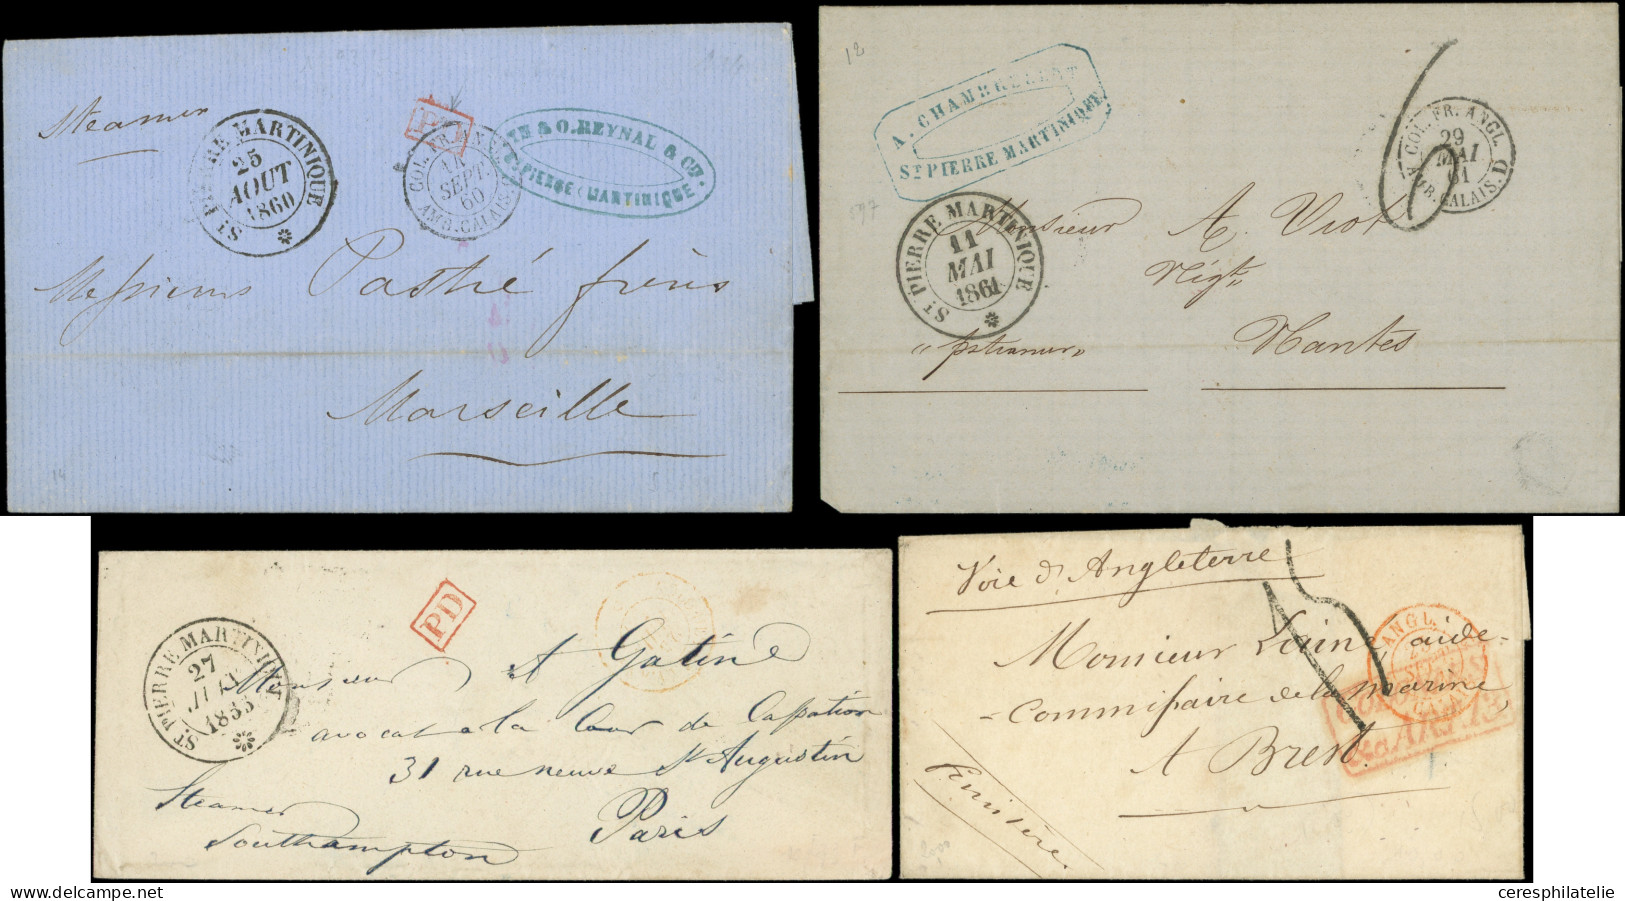 Steamer
ST PIERRE MARTINIQUE
25
AOUT
1860
PD
COL. FR.
SEPT.
60
AMB. CALAIS
& O. REYNAL & CIE
ST PIERRE (MARTINIQUE)
Messieurs Pastré frères
Marseille
12
A. CHAMBRELENT
ST PIERRE MARTINIQUE
597
ST PIERRE MARTINIQUE
11
MAI
1861
6
COL. FR. ANGL.
29
MAI
61
AMB. CALAIS. D
Monsieur A. Viot
Négt
Nantes
"pr steamer"
ST. PIERRE MARTINIQUE
27
1855
PD
A Gatine
Monsieur
avocat à la Cour de Cassation
31 rue neuve St Augustin
Paris
Steamer
Southampton
Voie d'Angleterre
Monsieur Lainé, aide-
-commissaire de la marine,
A Brest
ANGL.
SEPT
COLONIES
&a ART. 13
15